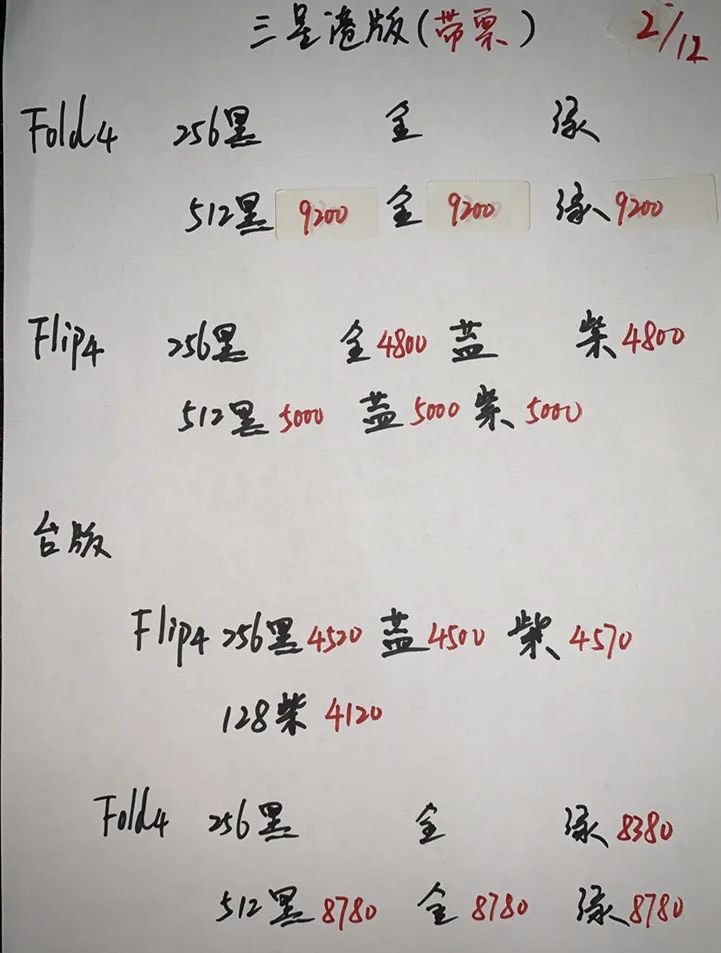 三星港版(带票) 2/12
Fold4 256黑 金 绿
512黑 9200 金 9200 绿 9200
Flip4 256黑 金4800 蓝 紫4800
512黑5000 蓝5000 紫5000
台版
Flip4 256黑4520 蓝4500 紫4570
128紫 4120
Fold4 256黑 金 绿8380
512黑8780 金8780 绿8780